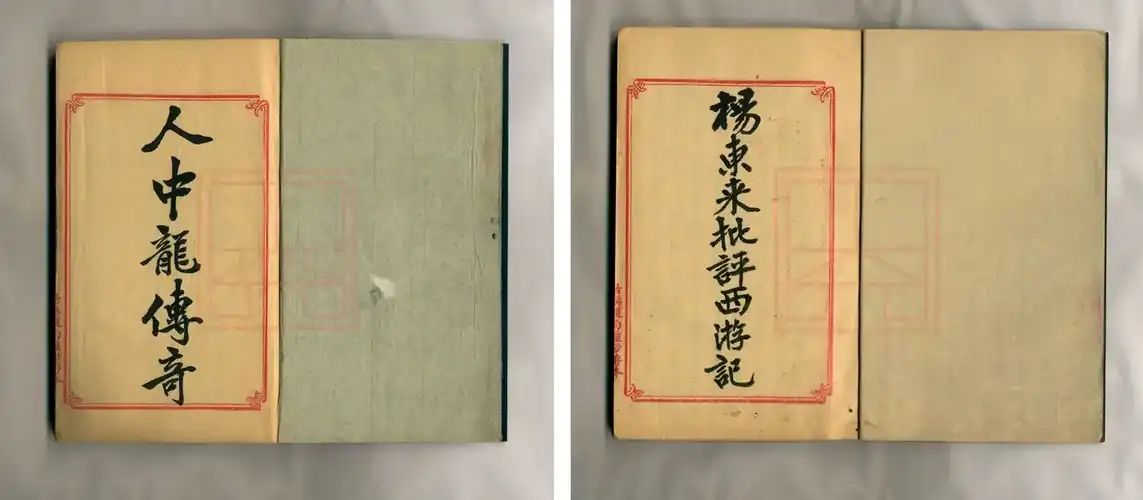 人中龍傳奇
楊東来批評西游記